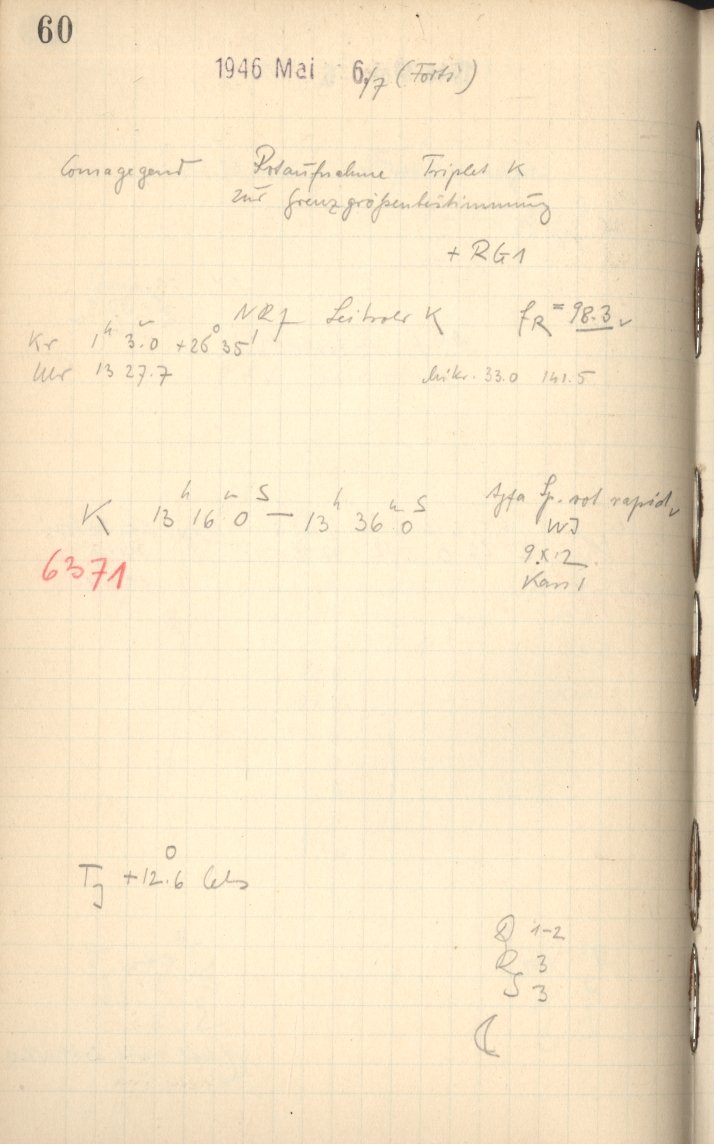 60
1946 Mai 6./7 (Forts.)
Comagegend Rotaufnahme Triplet K
zur Grenzgrößenbestimmung
+ RG1
Leitrohr K fR = 98.3
Kr 1h 3.0 +26° 35'
Uhr 13 27.7 Mikr. 33.0 141.5
K 13h 16m 0s — 13h 36m 0s Agfa Sp. rot rapid
6371
9x12
Kass 1
TJ +12.6° Cels
1-2
3
S 3
☾